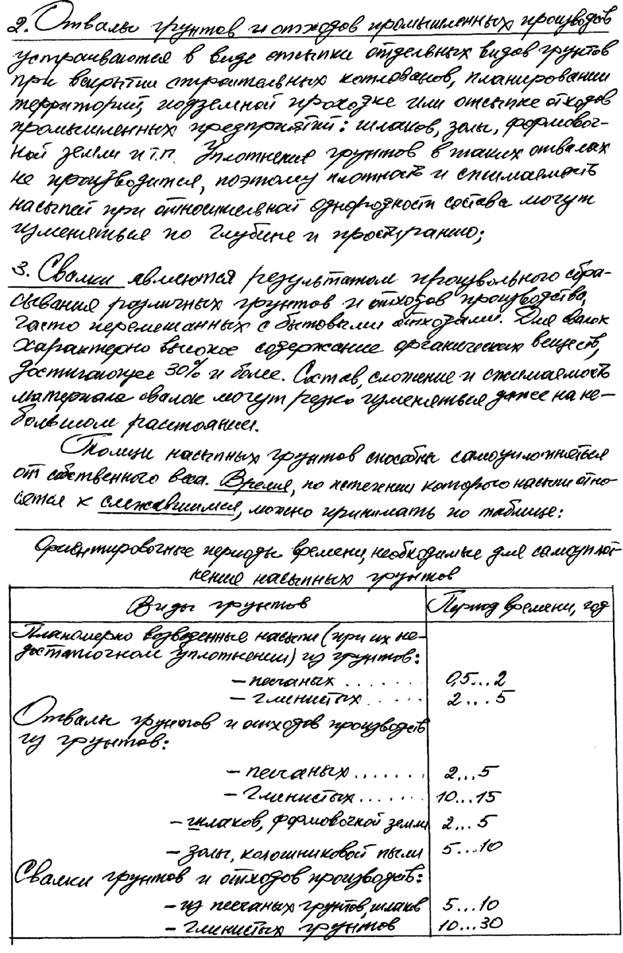 2. Отвалы грунтов и отходов промышленных производств
устраиваются в виде отсыпки отдельных видов грунтов
при вскрытии строительных котлованов, планировании
территорий, подземной проходке или отсыпке отходов
промышленных предприятий: шлаков, золы, формовоч-
ной земли и т.п. Уплотнения грунтов в таких отвалах
не производится, поэтому плотность и сжимаемость
насыпей при относительной однородности состава могут
изменяться по глубине и простиранию;
3. Свалки являются результатом произвольного сбра-
сывания различных грунтов и отходов производства,
часто перемешанных с бытовыми отходами. Для свалок
характерно высокое содержание органических веществ,
достигающее 30% и более. Состав, сложение и сжимаемость
материала свалок могут резко изменяться даже на не-
большом расстоянии.
Толщи насыпных грунтов способны самоуплотняться
от собственного веса. Время, по истечении которого насыпи отно-
сятся к слежавшимся, можно принимать по таблице:
Ориентировочные периоды времени, необходимые для самоуплот-
нения насыпных грунтов
Виды грунтов Период времени, год
Планомерно возведенные насыпи (при их не-
достаточном уплотнении) из грунтов:
– песчаных ....... 0,5...2
– глинистых ..... 2...5
Отвалы грунтов и отходов производств
из грунтов:
– песчаных ....... 2...5
– глинистых ...... 10...15
– шлаков, формовочной земли 2...5
– золы, колошниковой пыли 5...10
Свалки грунтов и отходов производств:
– из песчаных грунтов, шлаков 5...10
– глинистых грунтов 10...30